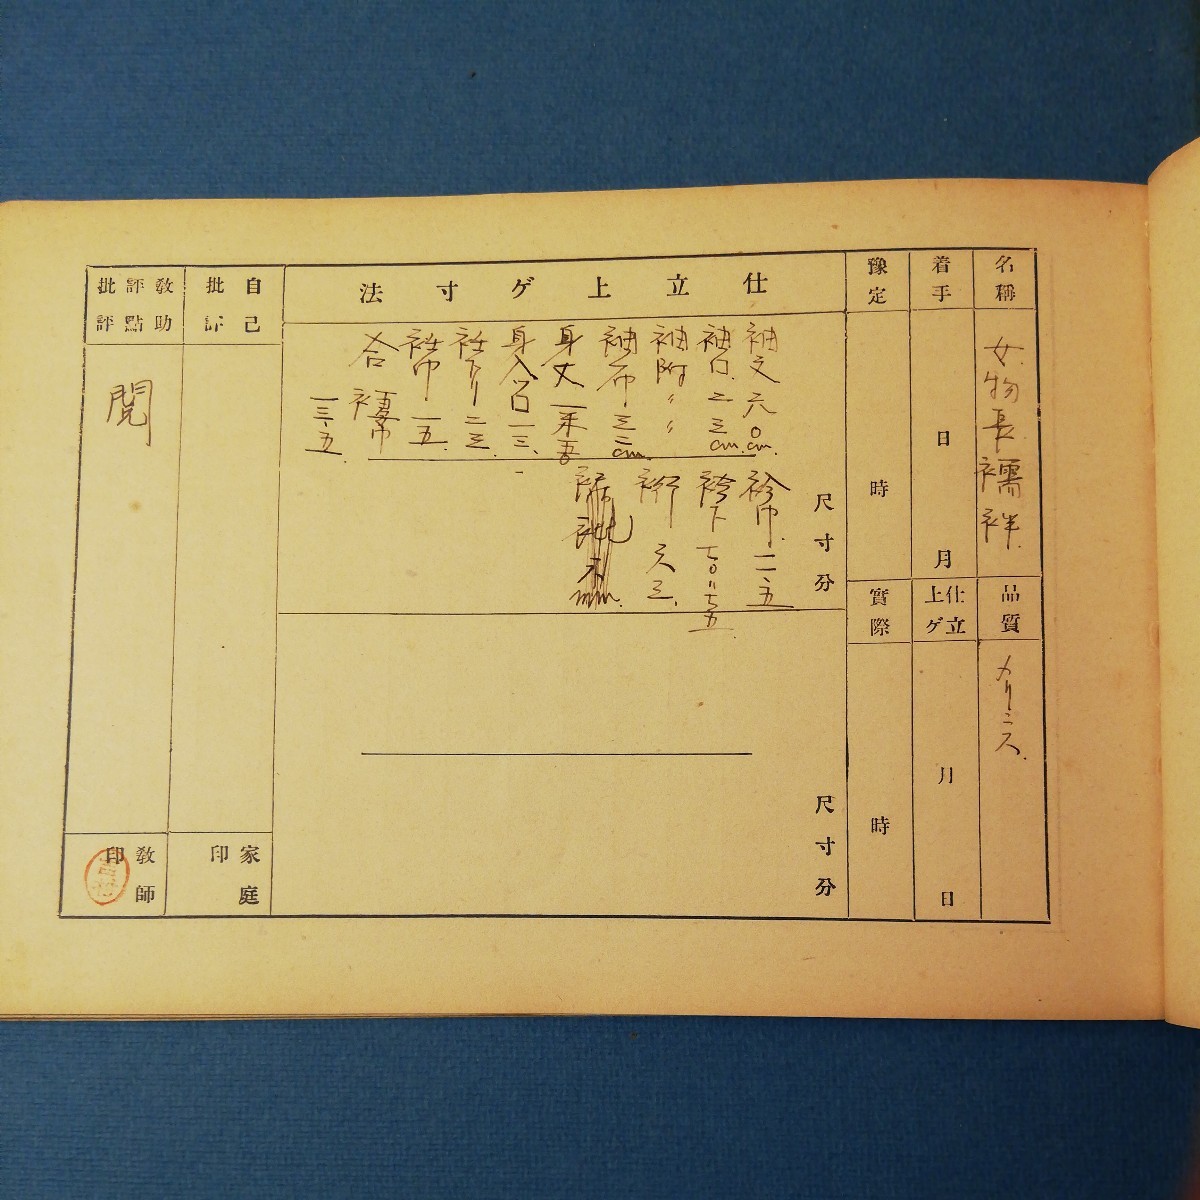 名稱
女物長襦袢
品質
メリンス
着手
日
月
仕立上ゲ
月
日
豫定
時
實際
時
仕立上ゲ寸法
袖丈 六〇cm.
袖口. 二三cm.
袖附 〃 〃
袖巾 三二cm.
身丈 一米
身八口 一三.
衽下リ 二三.
衽巾 一五.
合褄巾
一三.五.
尺寸分
衿巾. 一一.五
衿下 七〇〃七五.
裄 六三.
尺寸分
自己批評
家庭印
教助評點批評
閲
教師印